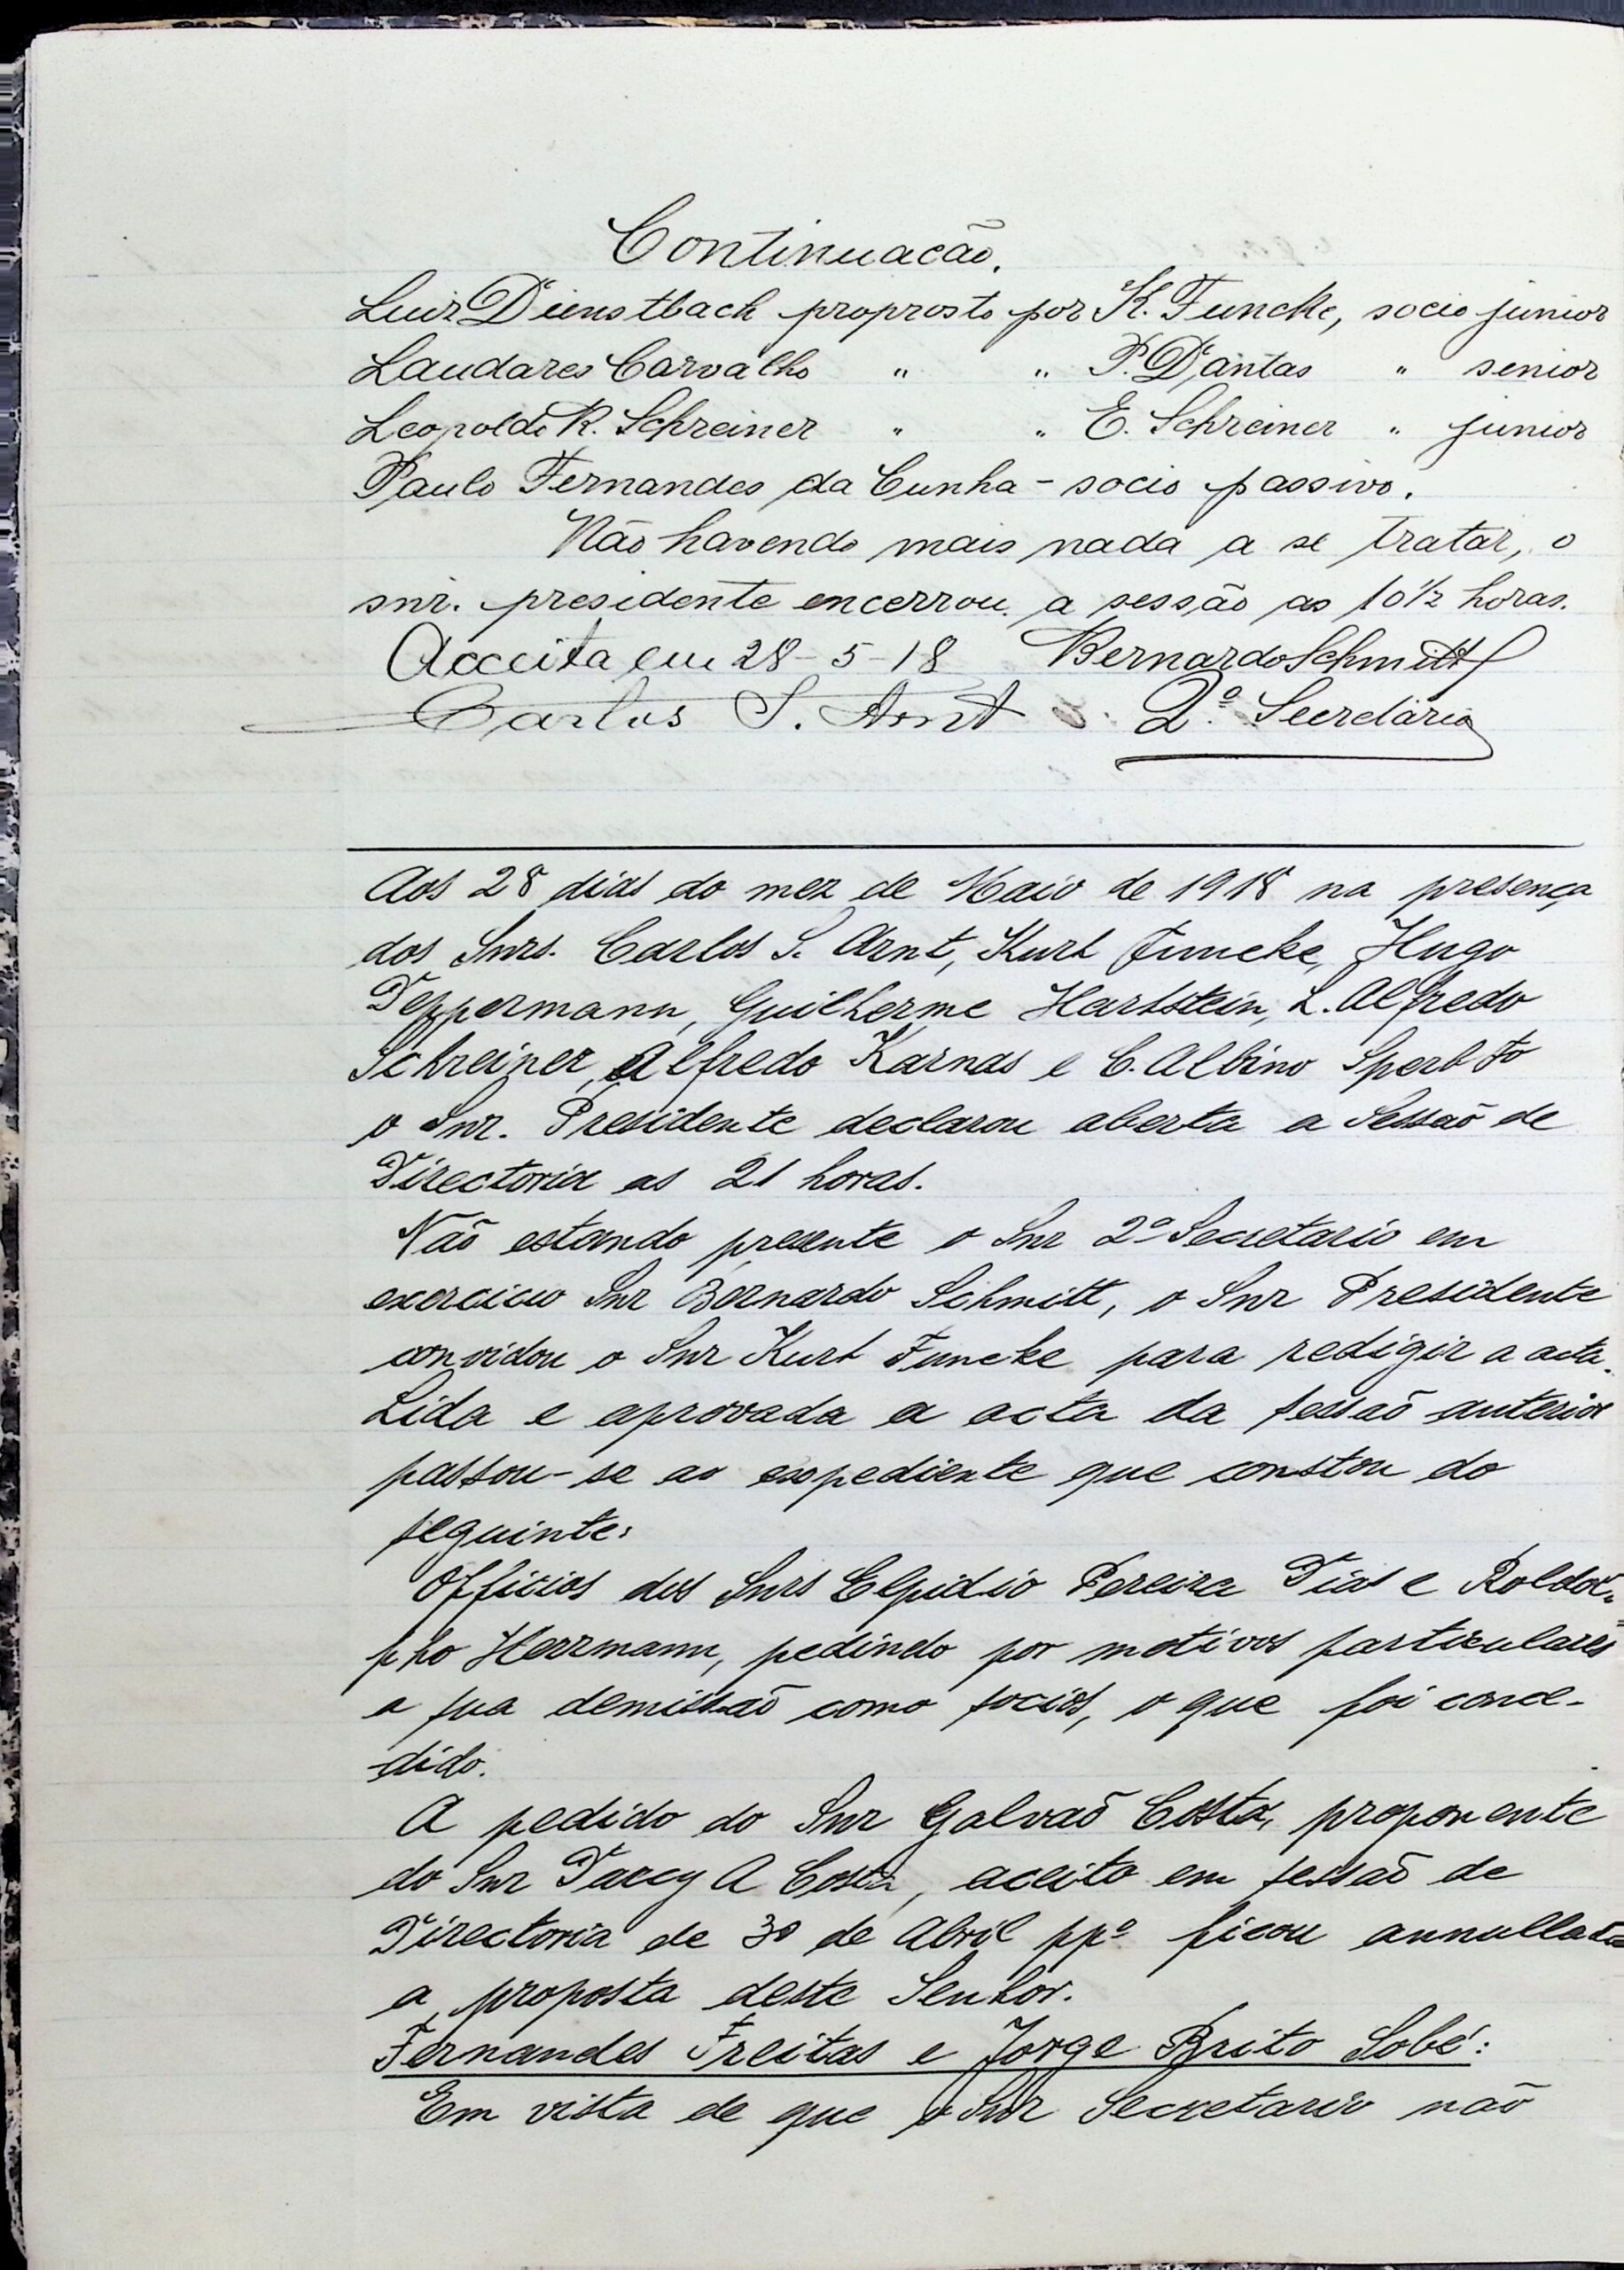 Continuacão.
Luiz Dienstbach proprosto por K. Funcke, socio junior
Laudares Carvalho " " P. Dantas " senior
Leopoldo R. Schreiner " " E. Schreiner " junior
Paulo Fernandes da Cunha - socio passivo.
Não havendo mais nada a se tratar, o
snr. presidente encerrou a sessão as 10 1/2 horas.
Acceita em 28-5-18 Bernardo Schmitt
Carlos S. Arnt 2º Secretario
Aos 28 dias do mez de Maio de 1918 na presença
dos Snrs. Carlos S. Arnt, Kurt Funcke, Hugo
Teppermann, Guilherme Hartstein, L. Alfredo
Schreiner, Alfredo Karnas e C. Albino Sperb Fo
o Snr. Presidente declarou aberta a Sessaõ de
Directoria as 21 horas.
Naõ estando presente o Snr 2º Secretario em
exercicio Snr Bernardo Schmitt, o Snr Presidente
convidou o Snr Kurt Funcke para redigir a acta.
Lida e aprovada a acta da sessaõ anterior
passou-se ao expediente que constou do
seguinte:
Officios dos Snrs Elpidio Pereira Dias e Roldol-
pho Herrmann, pedindo por motivos particulares
a sua demissaõ como socios, o que foi conce-
dido.
A pedido do Snr Galvaõ Costa, proponente
do Snr Darcy A Costa, aceito em sessaõ de
Directoria de 30 de Abril ppº ficou annullada
a proposta deste Senhor.
Fernandes Freitas e Jorge Brito Sobé:
Em vista de que o Snr Secretario naõ